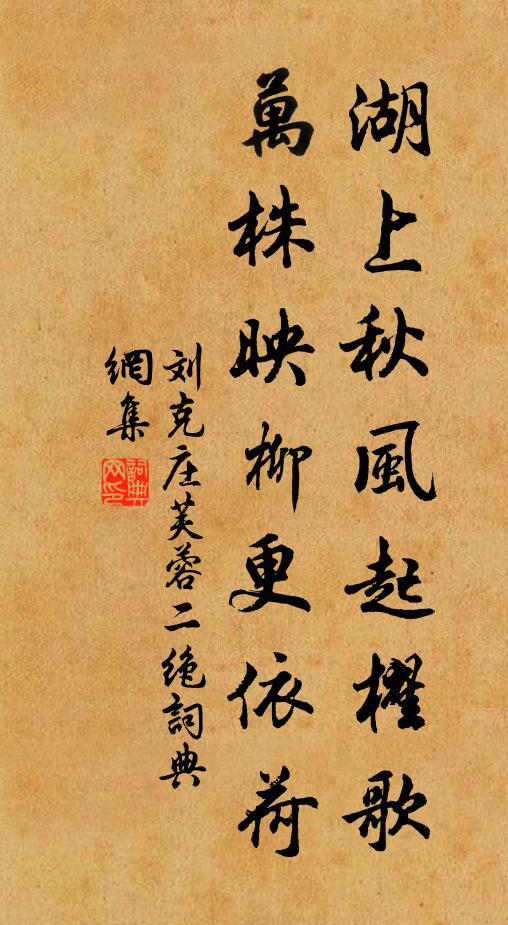 湖上秋風起櫂歌
萬株映柳更依荷
刘克庄芙蓉二绝詞典
網集
詞典
网印